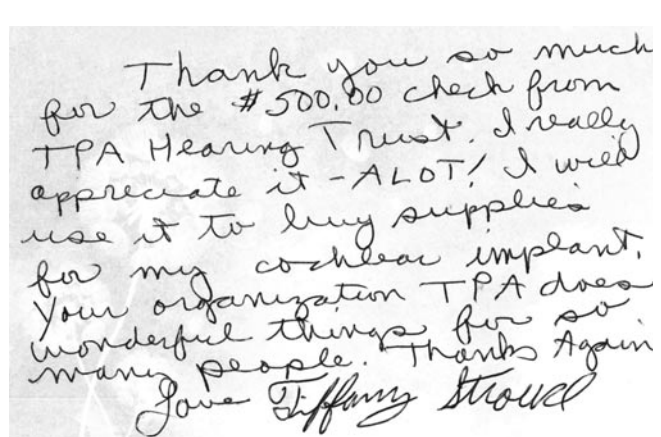 Thank you so much
for the $500.00 check from
TPA Hearing Trust. I really
appreciate it - ALOT! I will
use it to buy supplies
for my cochlear implant.
Your organization TPA does
wonderful things for so
many people. Thanks Again
Love Tiffany